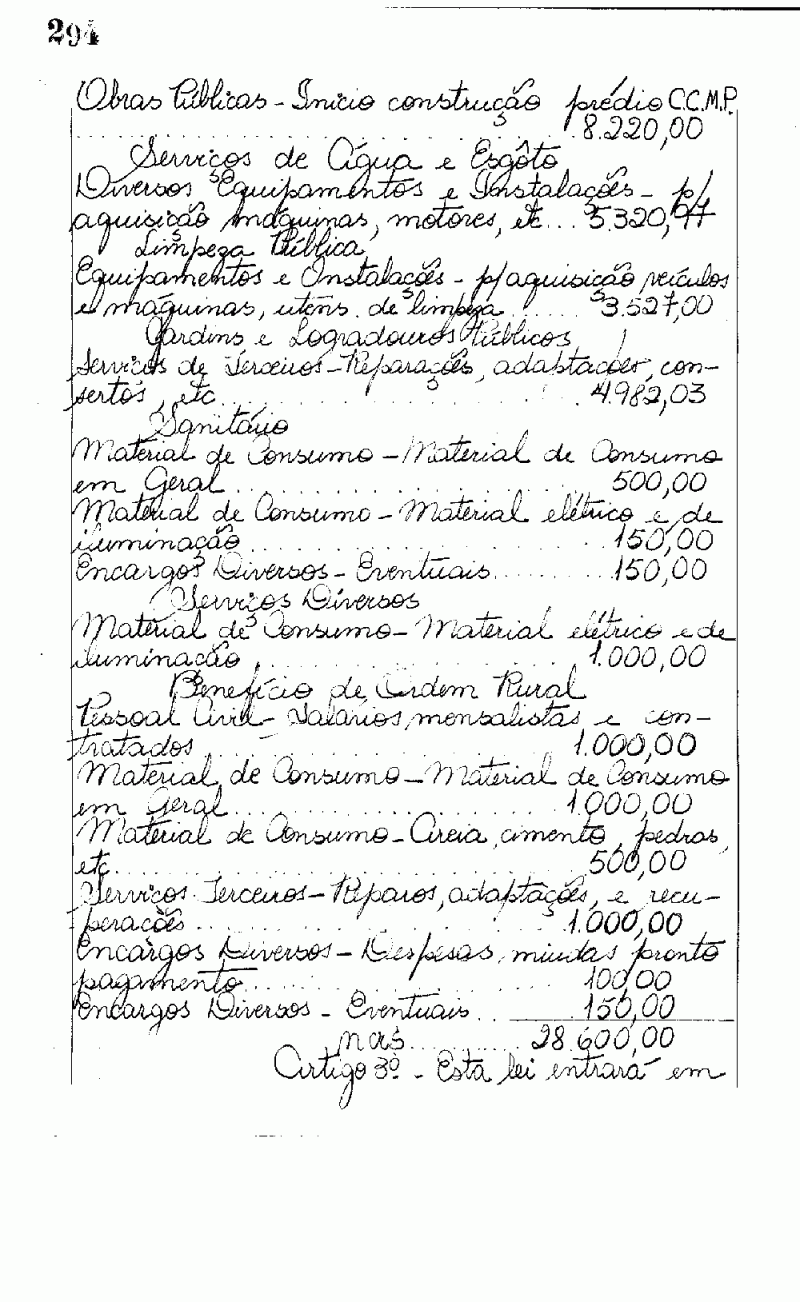 294
Obras Públicas - Início construção prédio C.C.M.P.
8.220,00
Serviços de Água e Esgôto
Diversos Equipamentos e Instalações - p/
aquisição máquinas, motores, etc... 5.320,97
Limpeza Pública
Equipamentos e Instalações - p/ aquisição veículos
e máquinas, utens. de limpeza ...... 3.527,00
Jardins e Logradouros Públicos
Serviços de Terceiros - Reparações, adaptações, con-
sertos, etc. .......... 4.982,03
Sanitário
Material de Consumo - Material de Consumo
em Geral .......... 500,00
Material de Consumo - Material elétrico e de
iluminação .......... 150,00
Encargos Diversos - Eventuais .......... 150,00
Serviços Diversos
Material de Consumo - Material elétrico e de
iluminação .......... 1.000,00
Benefício de Ordem Rural
Pessoal Civil - Salários, mensalistas e con-
tratados .......... 1.000,00
Material de Consumo - Material de Consumo
em Geral .......... 1.000,00
Material de Consumo - Areia, cimento, pedras,
etc .......... 500,00
Serviços Terceiros - Reparos, adaptações, e recu-
perações .......... 1.000,00
Encargos Diversos - Despesas, miudas pronto
pagamento .......... 100,00
Encargos Diversos - Eventuais .. 150,00
.......... 28.600,00
Artigo 3º - Esta lei entrará em